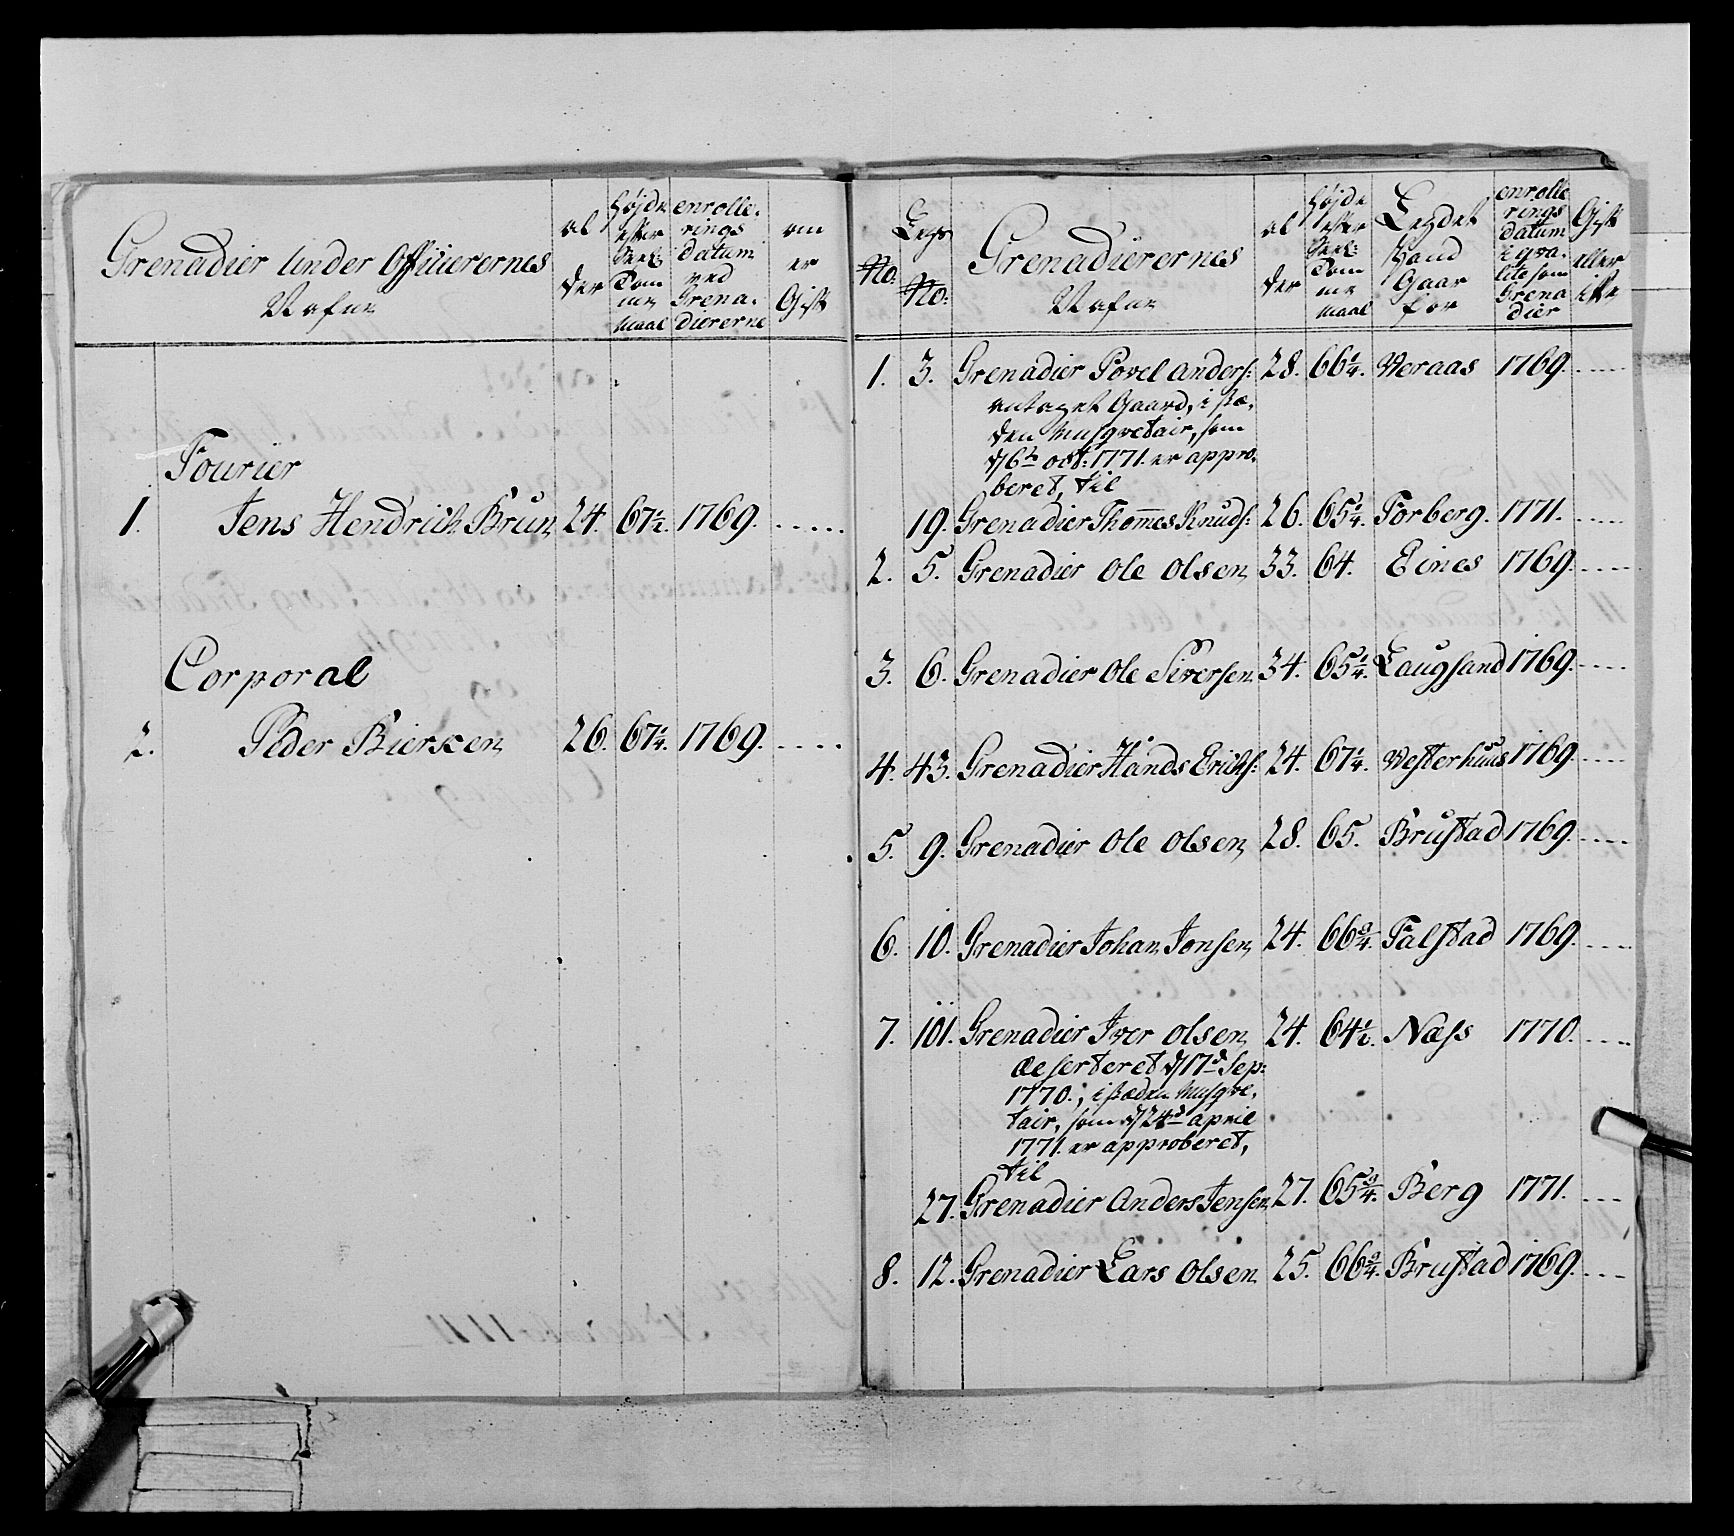 Grenadier Under Officierernes
Nafne
al
der
Højde
efter
Seel:
Tom
me
Maal
enrolle-
rings
datum
ved
Grena-
diererne
om
er
Gift
Fourier
1. Jens Hendrich Brun 24. 67½. 1769. .....
Corporal
2. Peder Biersen 26. 67¼. 1769. ....
No:
Legs
No:
Grenadierernes
Nafne
al
der
Højde
efter
Seel:
Tom
me
Maal
Legdet
Haud
Gaar
for
enrolle
rings
datum
eqva-
lite som
Grena
dier
Gift
eller
ikke
1. 3. Grenadier Povel Anders: 28. 66¼. Weraas 1769. .....
antaget Gaard, i stæ-
den Musqvetair, som
d/6t oct: 1771. er appro-
beret, til
19. Grenadier Thom̄es Knuds: 26. 65¼. Forberg. 1771. .....
2. 5. Grenadier Ole Olsen 33. 64. Eines 1769. .....
3. 6. Grenadier Ole Siversen 34. 65¼. Laugsand 1769. ....
4. 43. Grenadier Hands Erichs: 24. 67¼. Westerhuus 1769. ....
5. 9. Grenadier Ole Olsen 28. 65. Brustad 1769. ....
6. 10. Grenadier Johan Jonsen 24. 66¾. Falstad 1769. ....
7. 101. Grenadier Iver Olsen 24. 64½. Næss 1770. ....
deserteret d/17d Sep:
1770., i stæden Musqve-
tair, som d/24d april
1771. er approberet,
til
27. Grenadier Anders Jensen 27. 65¾. Berg 1771. ....
8. 12. Grenadier Lars Olsen 25. 66¾. Brustad 1769. ....